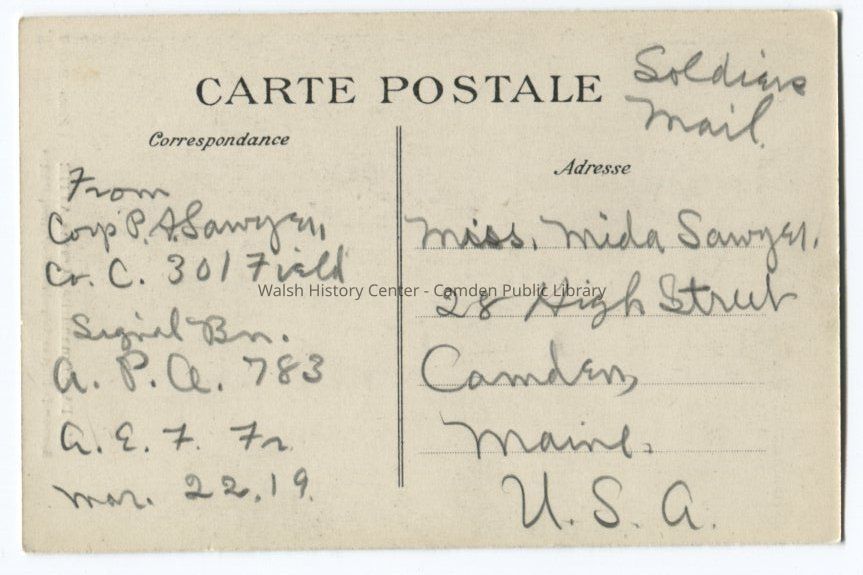 CARTE POSTALE
Soldiers
Mail.
Correspondance
Adresse
From
Corp P. A. Sawyer,
Co. C. 301 Field
Signal Bn.
A. P. O. 783
A. E. F. Fr.
Mar. 22, 19.
Miss. Mida Sawyer.
28 High Street
Camden,
Maine.
U. S. A.
Walsh History Center - Camden Public Library